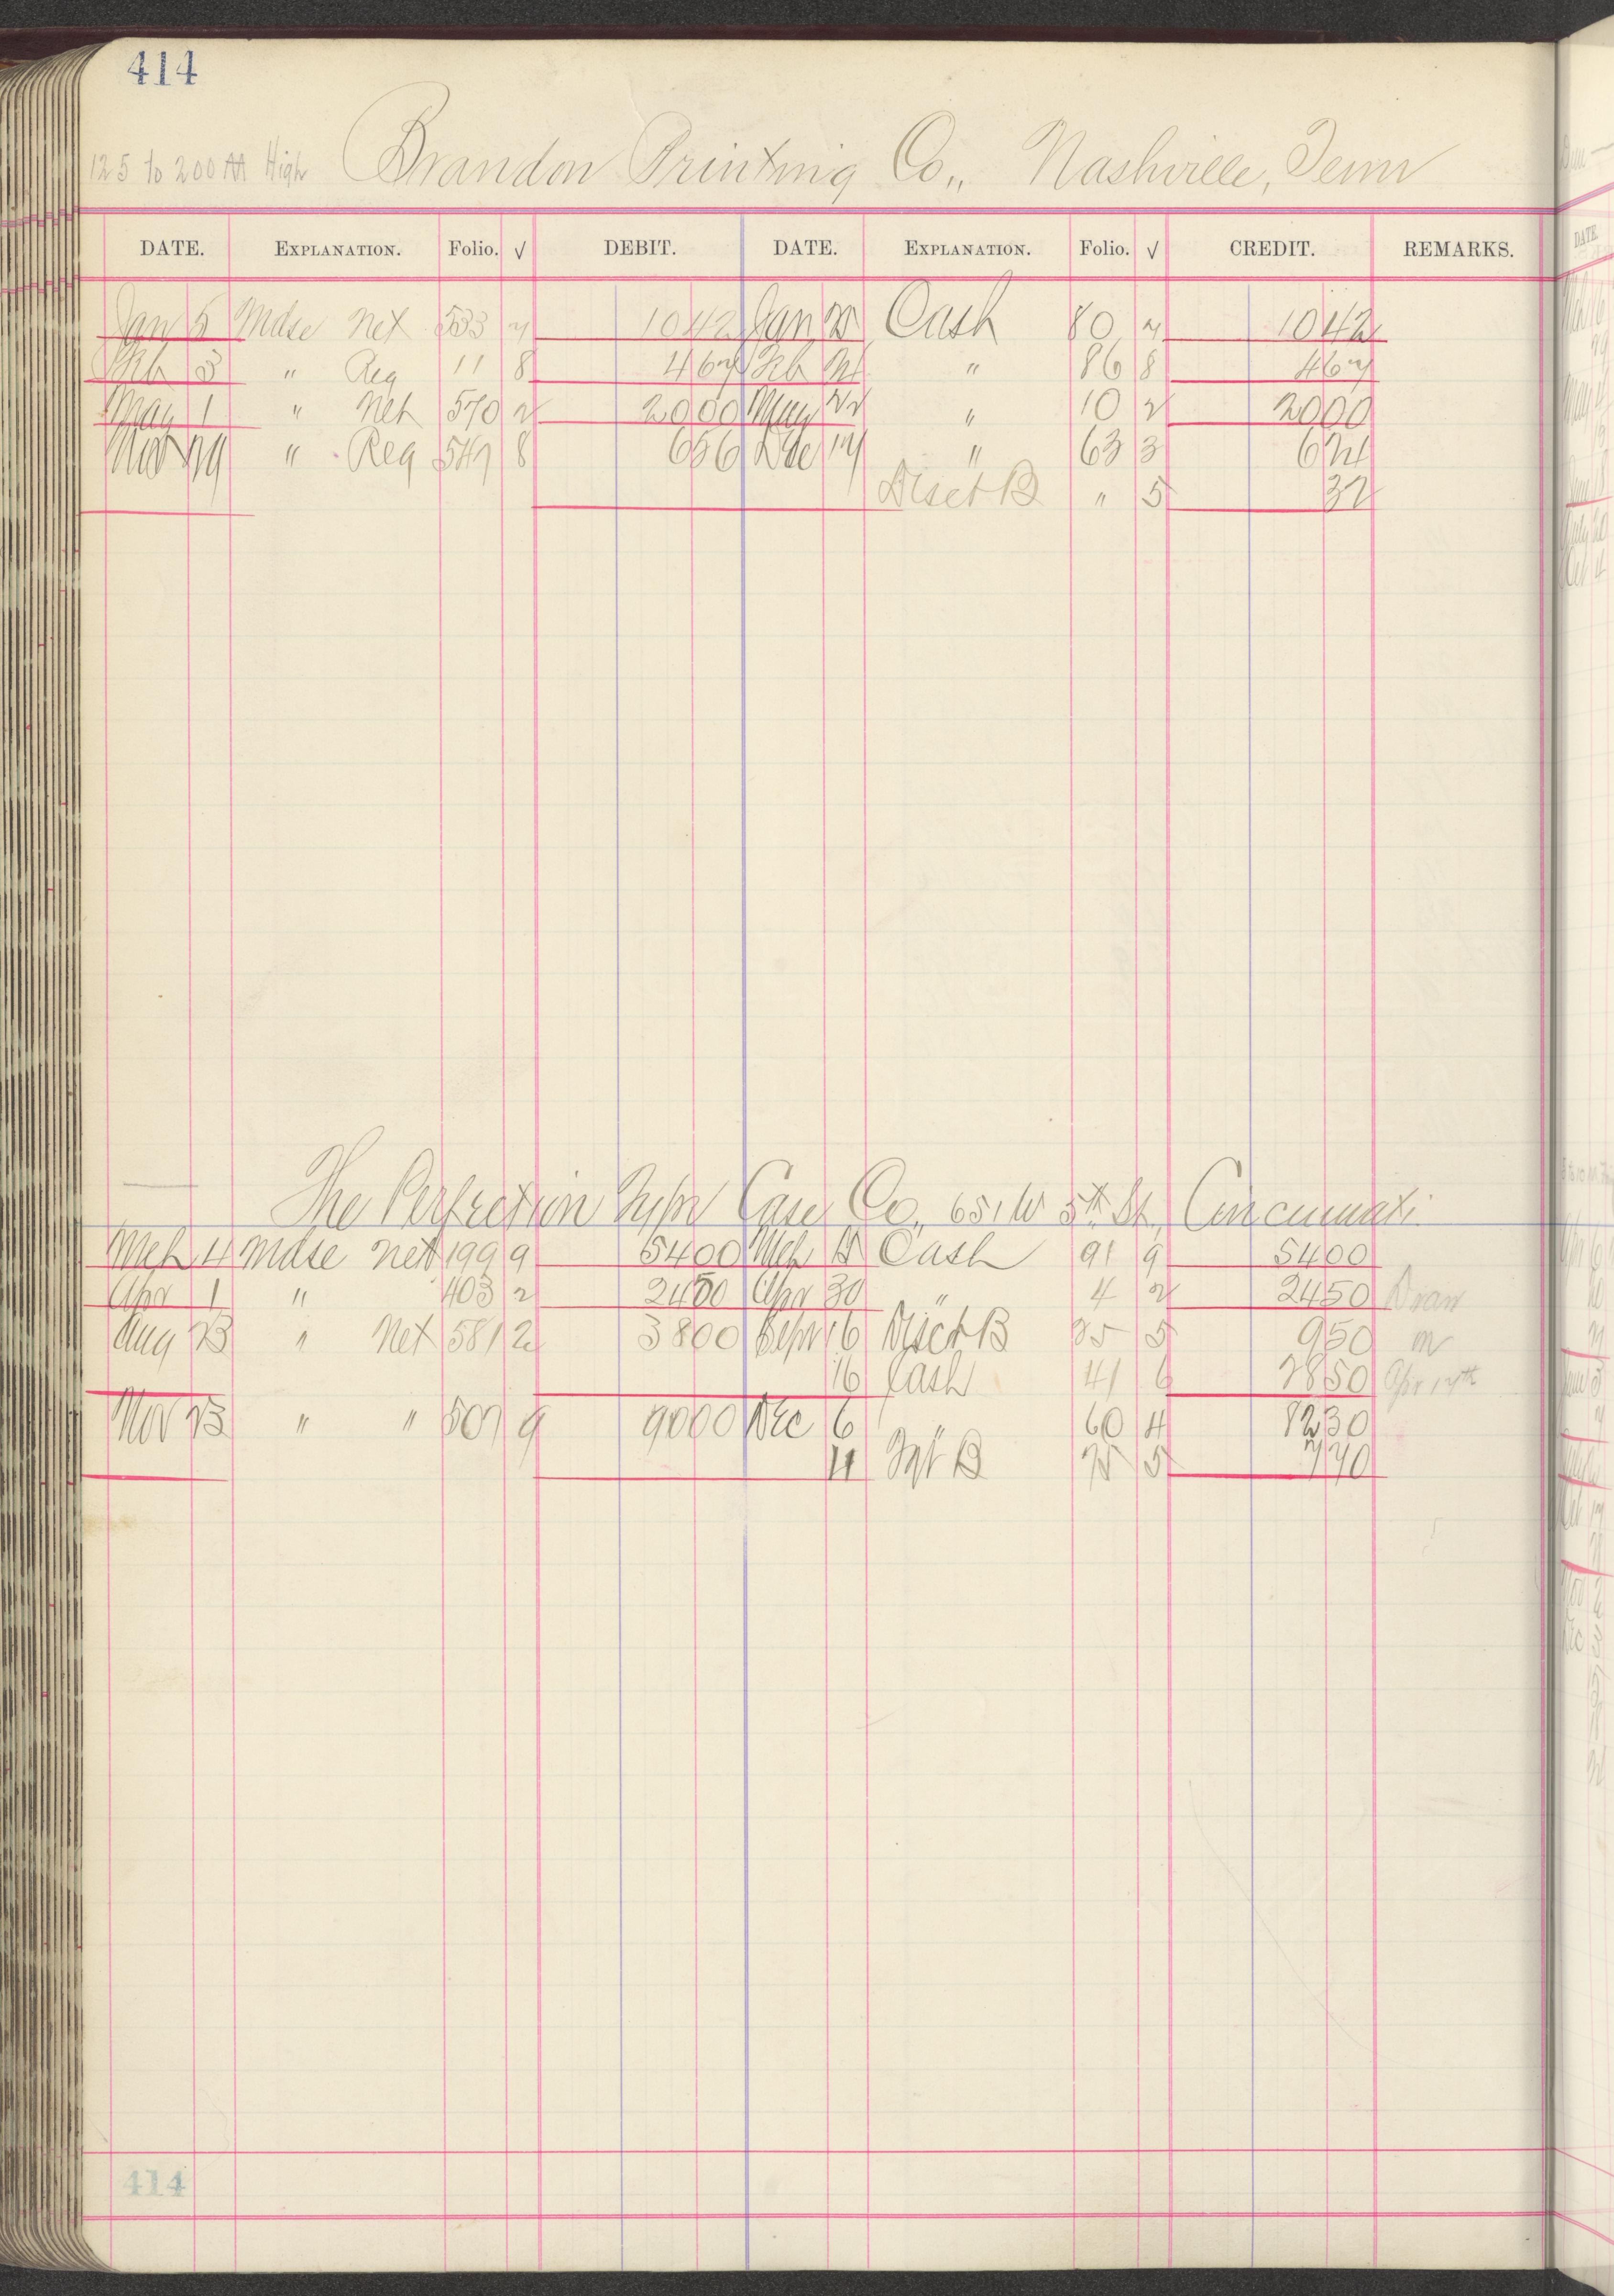 414
125 to 200 M High Brandon Printing Co., Nashville, Tenn
DATE. EXPLANATION. Folio. √ DEBIT. DATE. EXPLANATION. Folio. √ CREDIT. REMARKS.
Jan 5 Mdse Net 533 7 1042 Jan 25 Cash 80 7 1042
Feb 3 " Reg 11 8 467 Feb " 86 8 467
May 1 " Net 570 2 2000 May 22 " 10 2 2000
Nov 19 " Reg 547 8 656 Dec 17 " 63 3 624
Disct B " 5 32
The Perfection Type Case Co., 65 W 5th St, Cincinnati
Mch 4 Mdse Net 199 9 5400 Mch 15 Cash 91 9 5400
Apr 1 " 403 2 2450 Apr 30 " 4 2 2450
Aug 23 " Net 581 2 3800 Sept 6 Disct B 35 5 950
16 Cash 41 6 2850 Apr 17th
Nov 23 " " 507 9 9000 Dec 6 " 60 4 8230
11 B 75 5 770
414